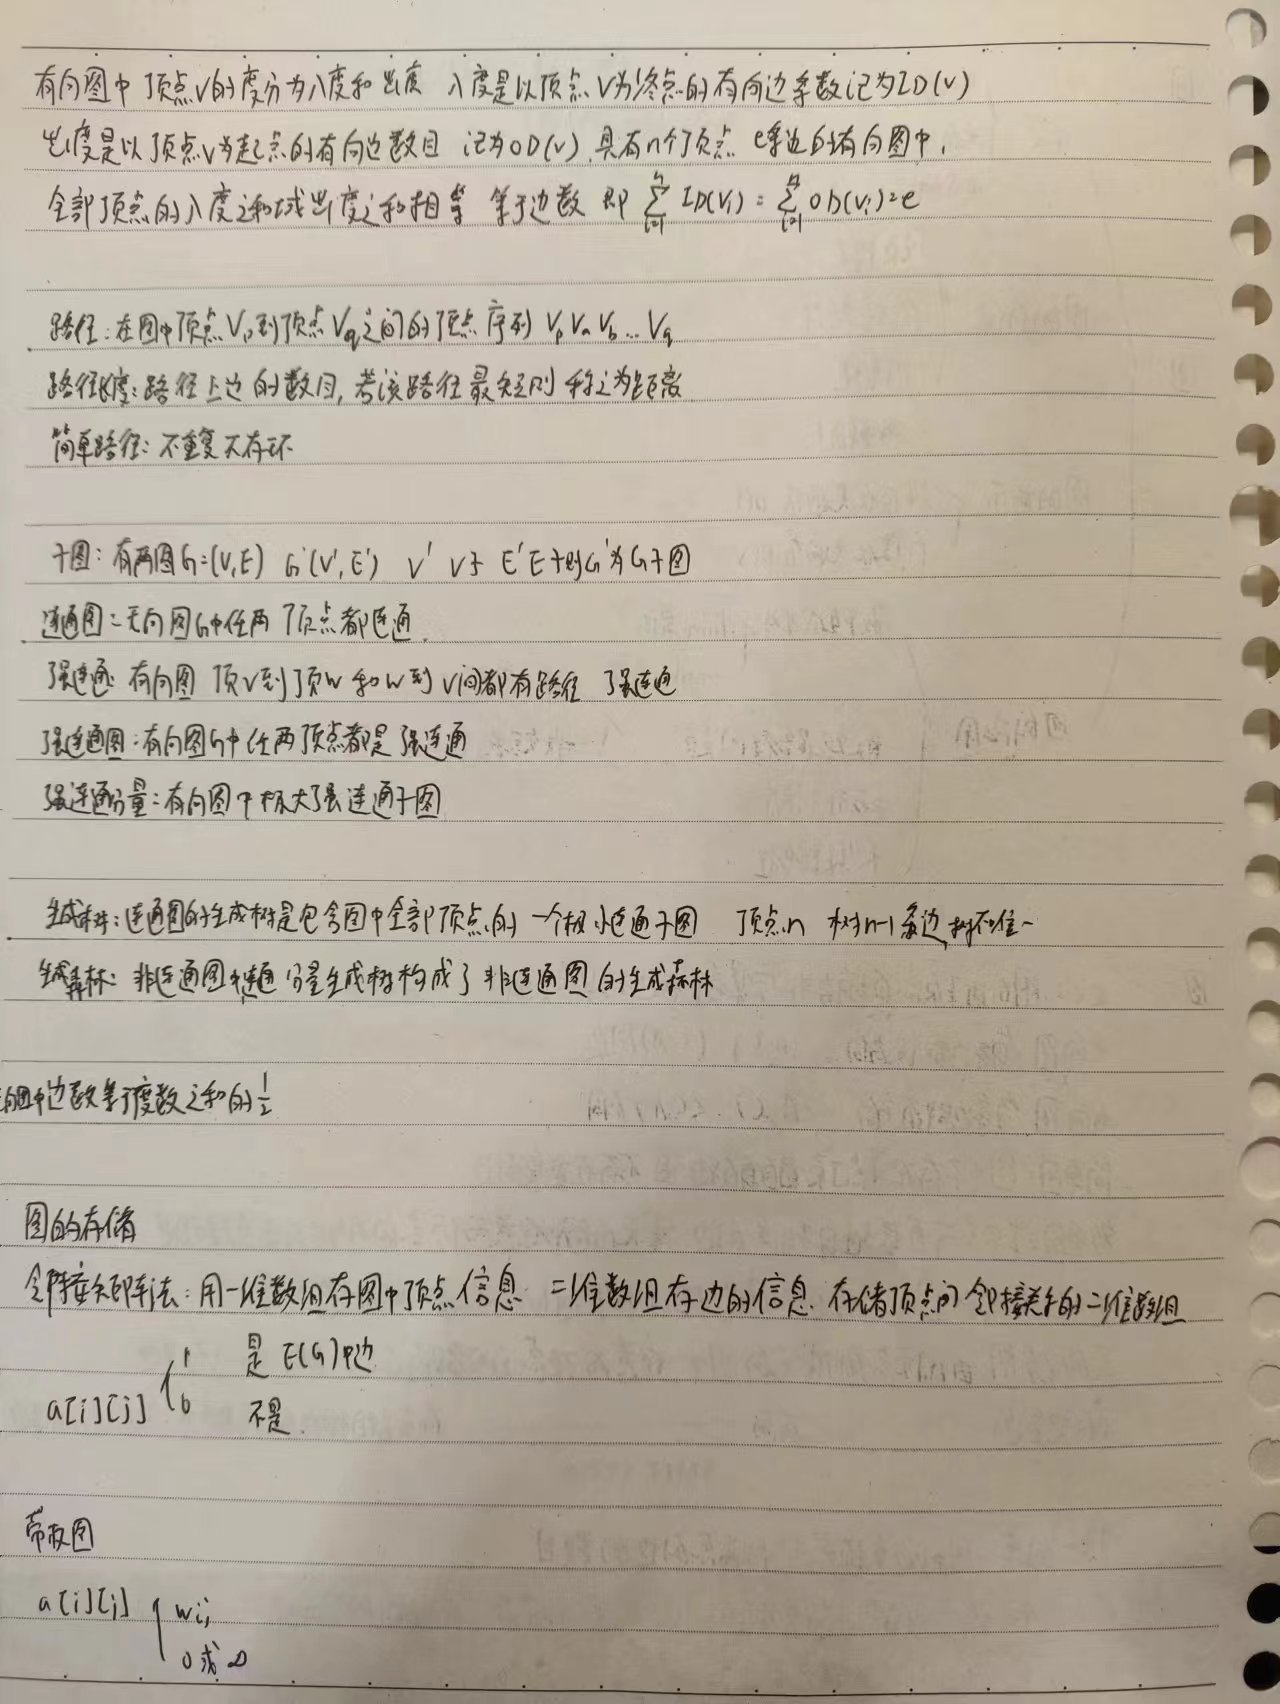 有向图中 顶点V的度分为入度和出度 入度是以顶点V为终点的有向边条数记为ID(v)
出度是以顶点v为起点的有向边数目 记为OD(v),具有n个顶点 e条边的有向图中,
全部顶点的入度之和或出度之和相等 等于边数 即 ∑ᵢ₌₁ⁿ ID(Vi) = ∑ᵢ₌₁ⁿ OD(Vi)=e
路径:在图中顶点Vp到顶点Vq之间的顶点序列 Vp Va Vb...Vq
路径长度:路径上边的数目,若该路径最短则称之为距离
简单路径:不重复不存环
子图:有两图G=(V,E) G'(V',E') V' V子 E'E子则G'为G子图
连通图:无向图G中任两顶点都连通
强连通:有向图 顶v到顶w和w到v间都有路径 强连通
强连通图:有向图G中任两顶点都是强连通
强连通分量:有向图中极大强连通子图
生成树:连通图的生成树是包含图中全部顶点的一个极小连通子图 顶点n 树n-1条边,树不唯一
生成森林:非连通图中连通分量生成树构成了非连通图的生成森林
向图中边数等于度数之和的1/2
图的存储
邻接矩阵法:用一维数组存图中顶点信息 二维数组存边的信息.存储顶点间邻接关系的二维数组
1 是E(G)中边
a[i][j] {
0 不是.
带权图
a[i][j] { wij
0或∞